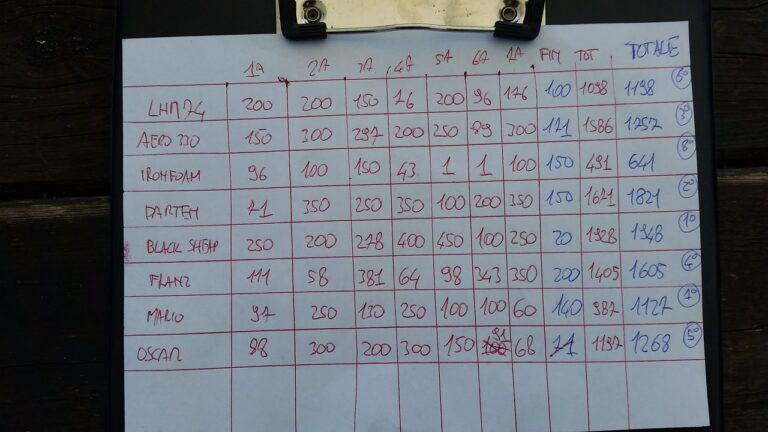 1A 2A 3A 4A 5A 6A 7A FIM TOT TOTALE
LHM74 200 200 150 76 200 96 176 100 1098 1198 6°
AERO 330 150 300 297 200 250 89 300 171 1586 1757 3°
IRONFOAM 96 100 150 43 1 1 100 150 491 641 8°
DARTEM 71 350 250 350 100 200 350 150 1671 1821 2°
BLACK SHEAP 250 200 278 400 450 100 250 20 1928 1948 1°
FLANZ 111 58 381 64 98 343 350 200 1405 1605 4°
MARIO 97 250 130 250 100 100 60 140 987 1127 7°
OSCAR 88 300 200 300 150 91 68 71 1197 1268 5°